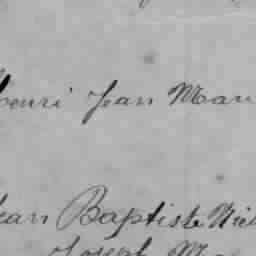 Henri Jean Mau
Jean Baptiste Nic
Joseph Ma